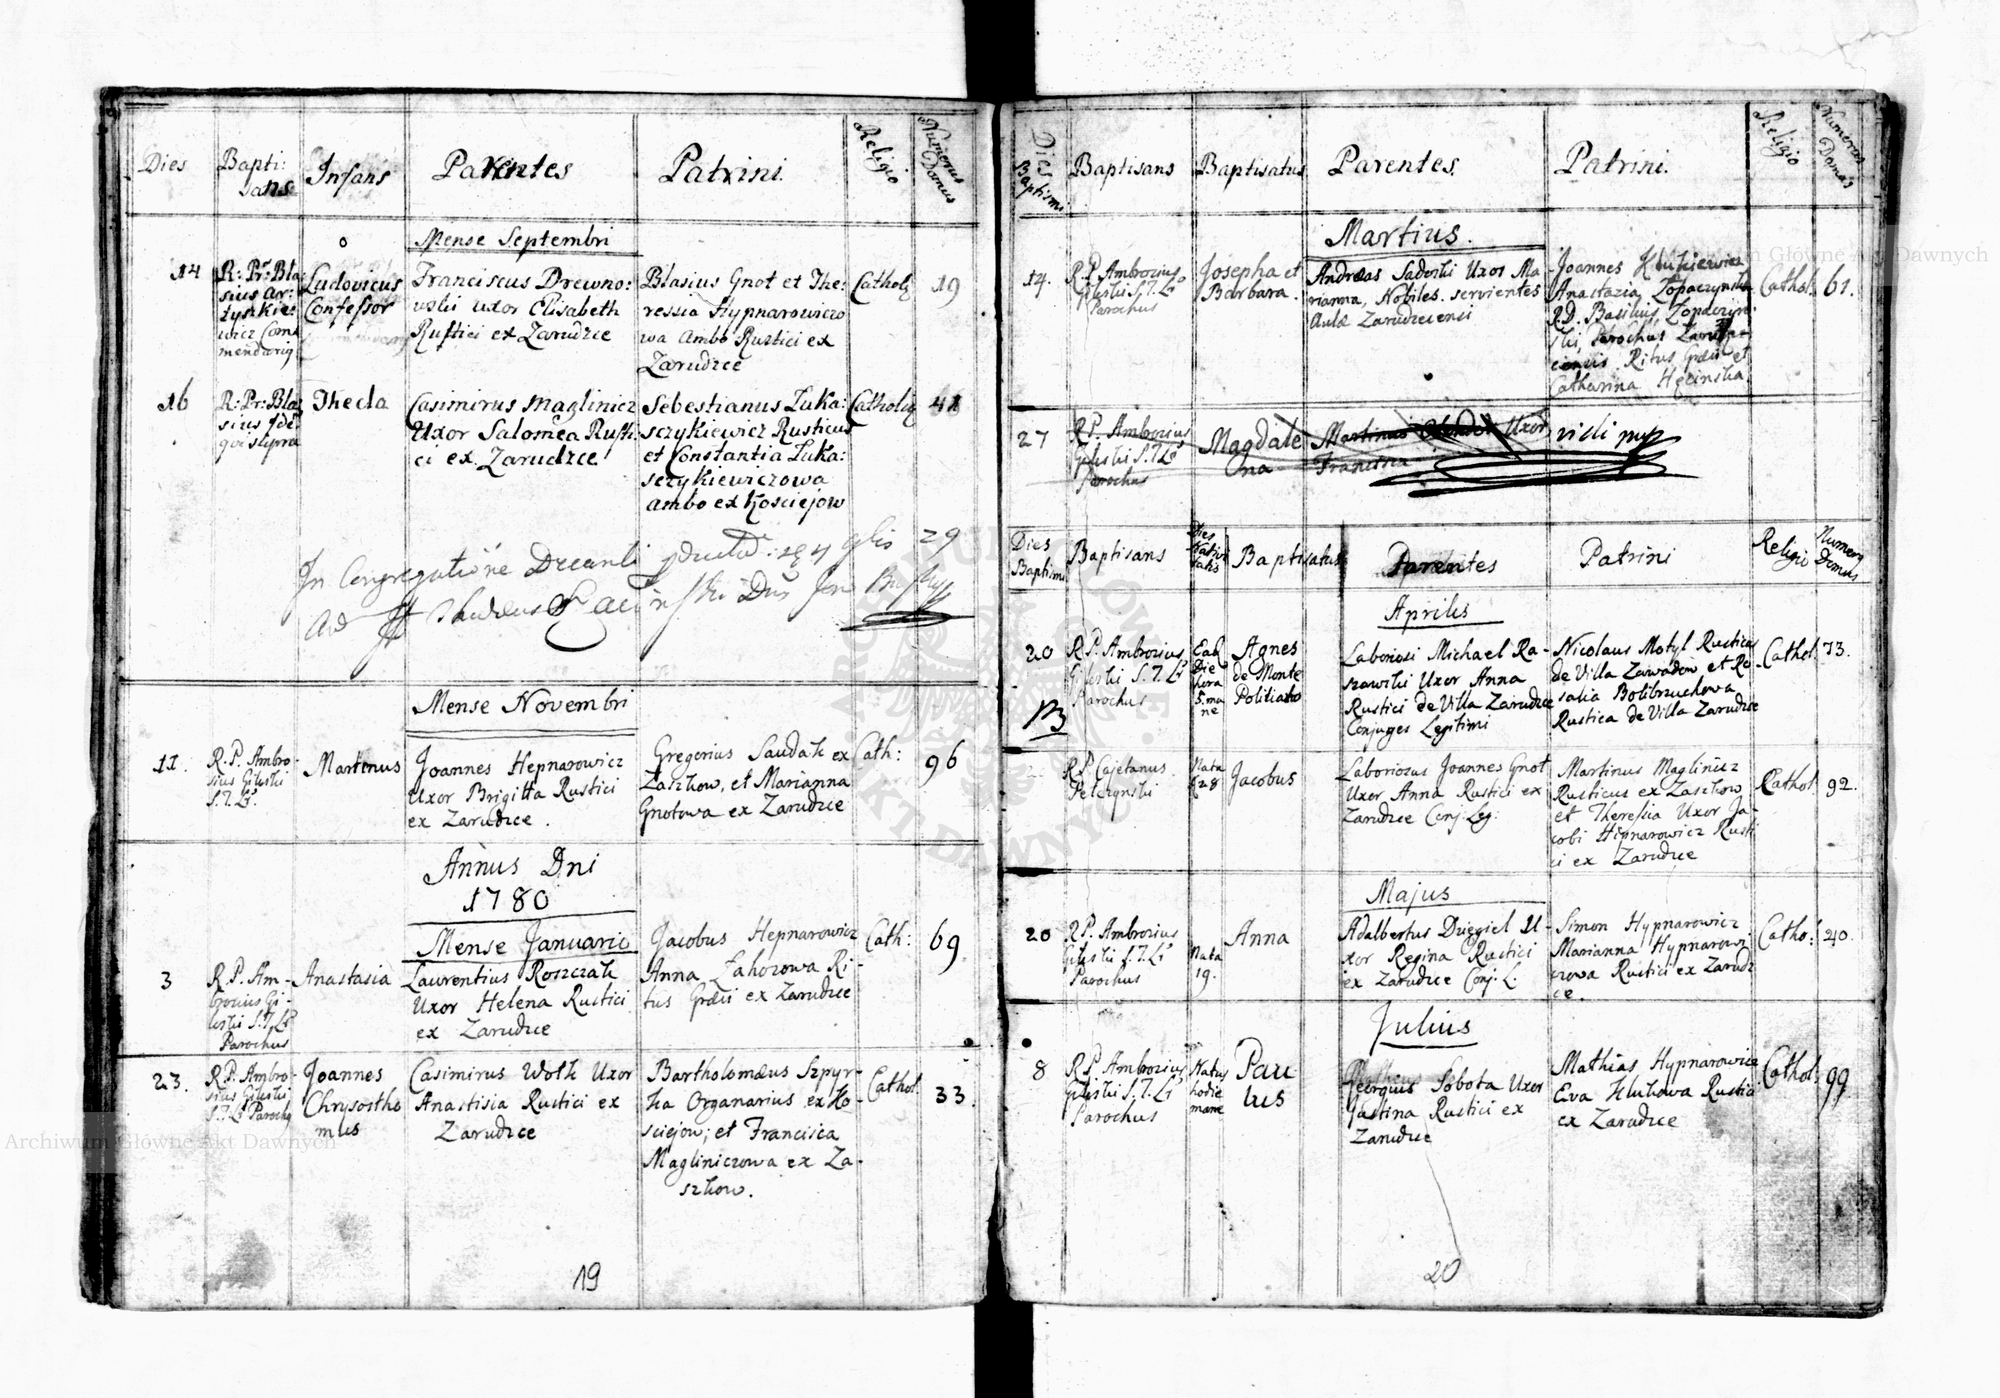 Dies
Bapti:
sans
Infans
Parentes
Patrini.
Religio
Numerus
Domus
Mense Septembri
14
R: Pr: Bla
sius Ar:
tyszkie:
wicz Com̄
mendariq
Ludovicus
Confessor
Franciscus Drewno:
wski uxor Elisabeth
Rustici ex Zarudzce
Blasius Gnot et The:
ressia Hypnarowiczo
wa Ambo Rustici ex
Zarudzce
Catholq
19
16
R: Pr: Bla
sius Ide
qui supra
Thecla
Casimirus Maglinicz
Uxor Salomea Rusti
ci ex Zarudzce
Sebestianus Luka:
sczykiewicz Rusticus
et Constantia Luka:
sczykiewiczowa
Ambo ex Kosciejow
Catholiq
41
In Congregatione Decanali
29
Mense Novembri
11.
R. P. Ambro-
sius Gilistri
S. T. Lr.
Martinus
Joannes Hepnarowicz
Uxor Brigitta Rustici
ex Zarudzce.
Gregorius Saudak ex
Zaszkow, et Marianna
Gnotowa ex Zarudzce
Cath:
96
Annus Dni
1780
Mense Januario
3
R. P. Am-
brosius Gi-
listri S. T. Lr
Parochus
Anastasia
Laurentius Roszczak
Uxor Helena Rustici
ex Zarudzce
Jacobus Hepnarowicz
Anna Zahorowa Ri-
tus Græci ex Zarudzce
Cath:
69
23.
R. P. Ambro-
sius Gilistri
S. T. Lr Parochq
Joannes
Chrysostho
mus
Casimirus Wolk Uxor
Anastisia Rustici ex
Zarudzce
Bartholomæus Szpyr-
ka Organarius ex Ko-
sciejow; et Francisca
Magliniczowa ex Za-
szkow.
Cathol.
33.
19
Dies
Baptismi
Baptisans
Baptisatus
Parentes.
Patrini.
Religio
Numerus
Domus
Martius.
14.
R. P. Ambrosius
Gilistri S. T. Lr
Parochus
Josepha et
Barbara.
Andreas Sadoski Uxor Ma
rianna, Nobiles servientes
Aulæ Zarudzeciensi
Joannes
Anastazia Zopaczynska
R. D. Basilius Zopaczyn
ski, Parochus
Ritus Græci et
Catharina
Cathol.
61.
27
R. P. Ambrosius
Gilistri S. T. Lr
Parochus
Magdale
na
Martinus Uxor
Francisca
vidi mpp
Dies
Baptismi
Baptisans
Dies
Nativi
tatis
Baptisatus
Parentes
Patrini
Religio
Numerq
Domus
Aprilis
20
R. P. Ambrosius
Gilistri S. T. Lr
Parochus
Eaq
Die
hora
5. ma
ne
Agnes
de Monte
Politiano
Laboriosi Michael Ra-
szawski Uxor Anna
Rustici de Villa Zarudzce
Conjuges Legitimi
Nicolaus Motyl Rusticus
de Villa Zawadow et Ro
salia Bolibrzuchowa
Rustica de Villa Zarudzce
Cathol.
73.
R P Cajetanus
Pelczynski
Nata
28
Jacobus
Laboriosus Joannes Gnot
Uxor Anna Rustici ex
Zarudzce Conj: Leg:
Martinus Maglinicz
Rusticus ex Zaszkow
et Theressia Uxor Ja
cobi Hipnarowicz Rusti
ci ex Zarudzce
Cathol.
92.
Majus
20
R. P. Ambrosius
Gilistri S. T. Lr
Parochus
Nata
19.
Anna
Adalbertus Dziegiel U-
xor Regina Rustici
ex Zarudzce Conj: L:
Simon Hypnarowicz
Marianna Hypnarowi
czowa Rustici ex Zarudz
ce.
Catho:
40.
Julius
8
R. P. Ambrosius
Gilistri S. T. Lr
Parochus
Natus
hodie
mane
Pau
lus
Georgius Sobota Uxor
Justina Rustici ex
Zarudzce
Mathias Hypnarowicz
Eva Hukowa Rustici
ex Zarudzce
Cathol:
99
20
Archiwum Główne Akt Dawnych
Archiwum Główne Akt Dawnych
ARCHIWUM GŁÓWNE AKT DAWNYCH